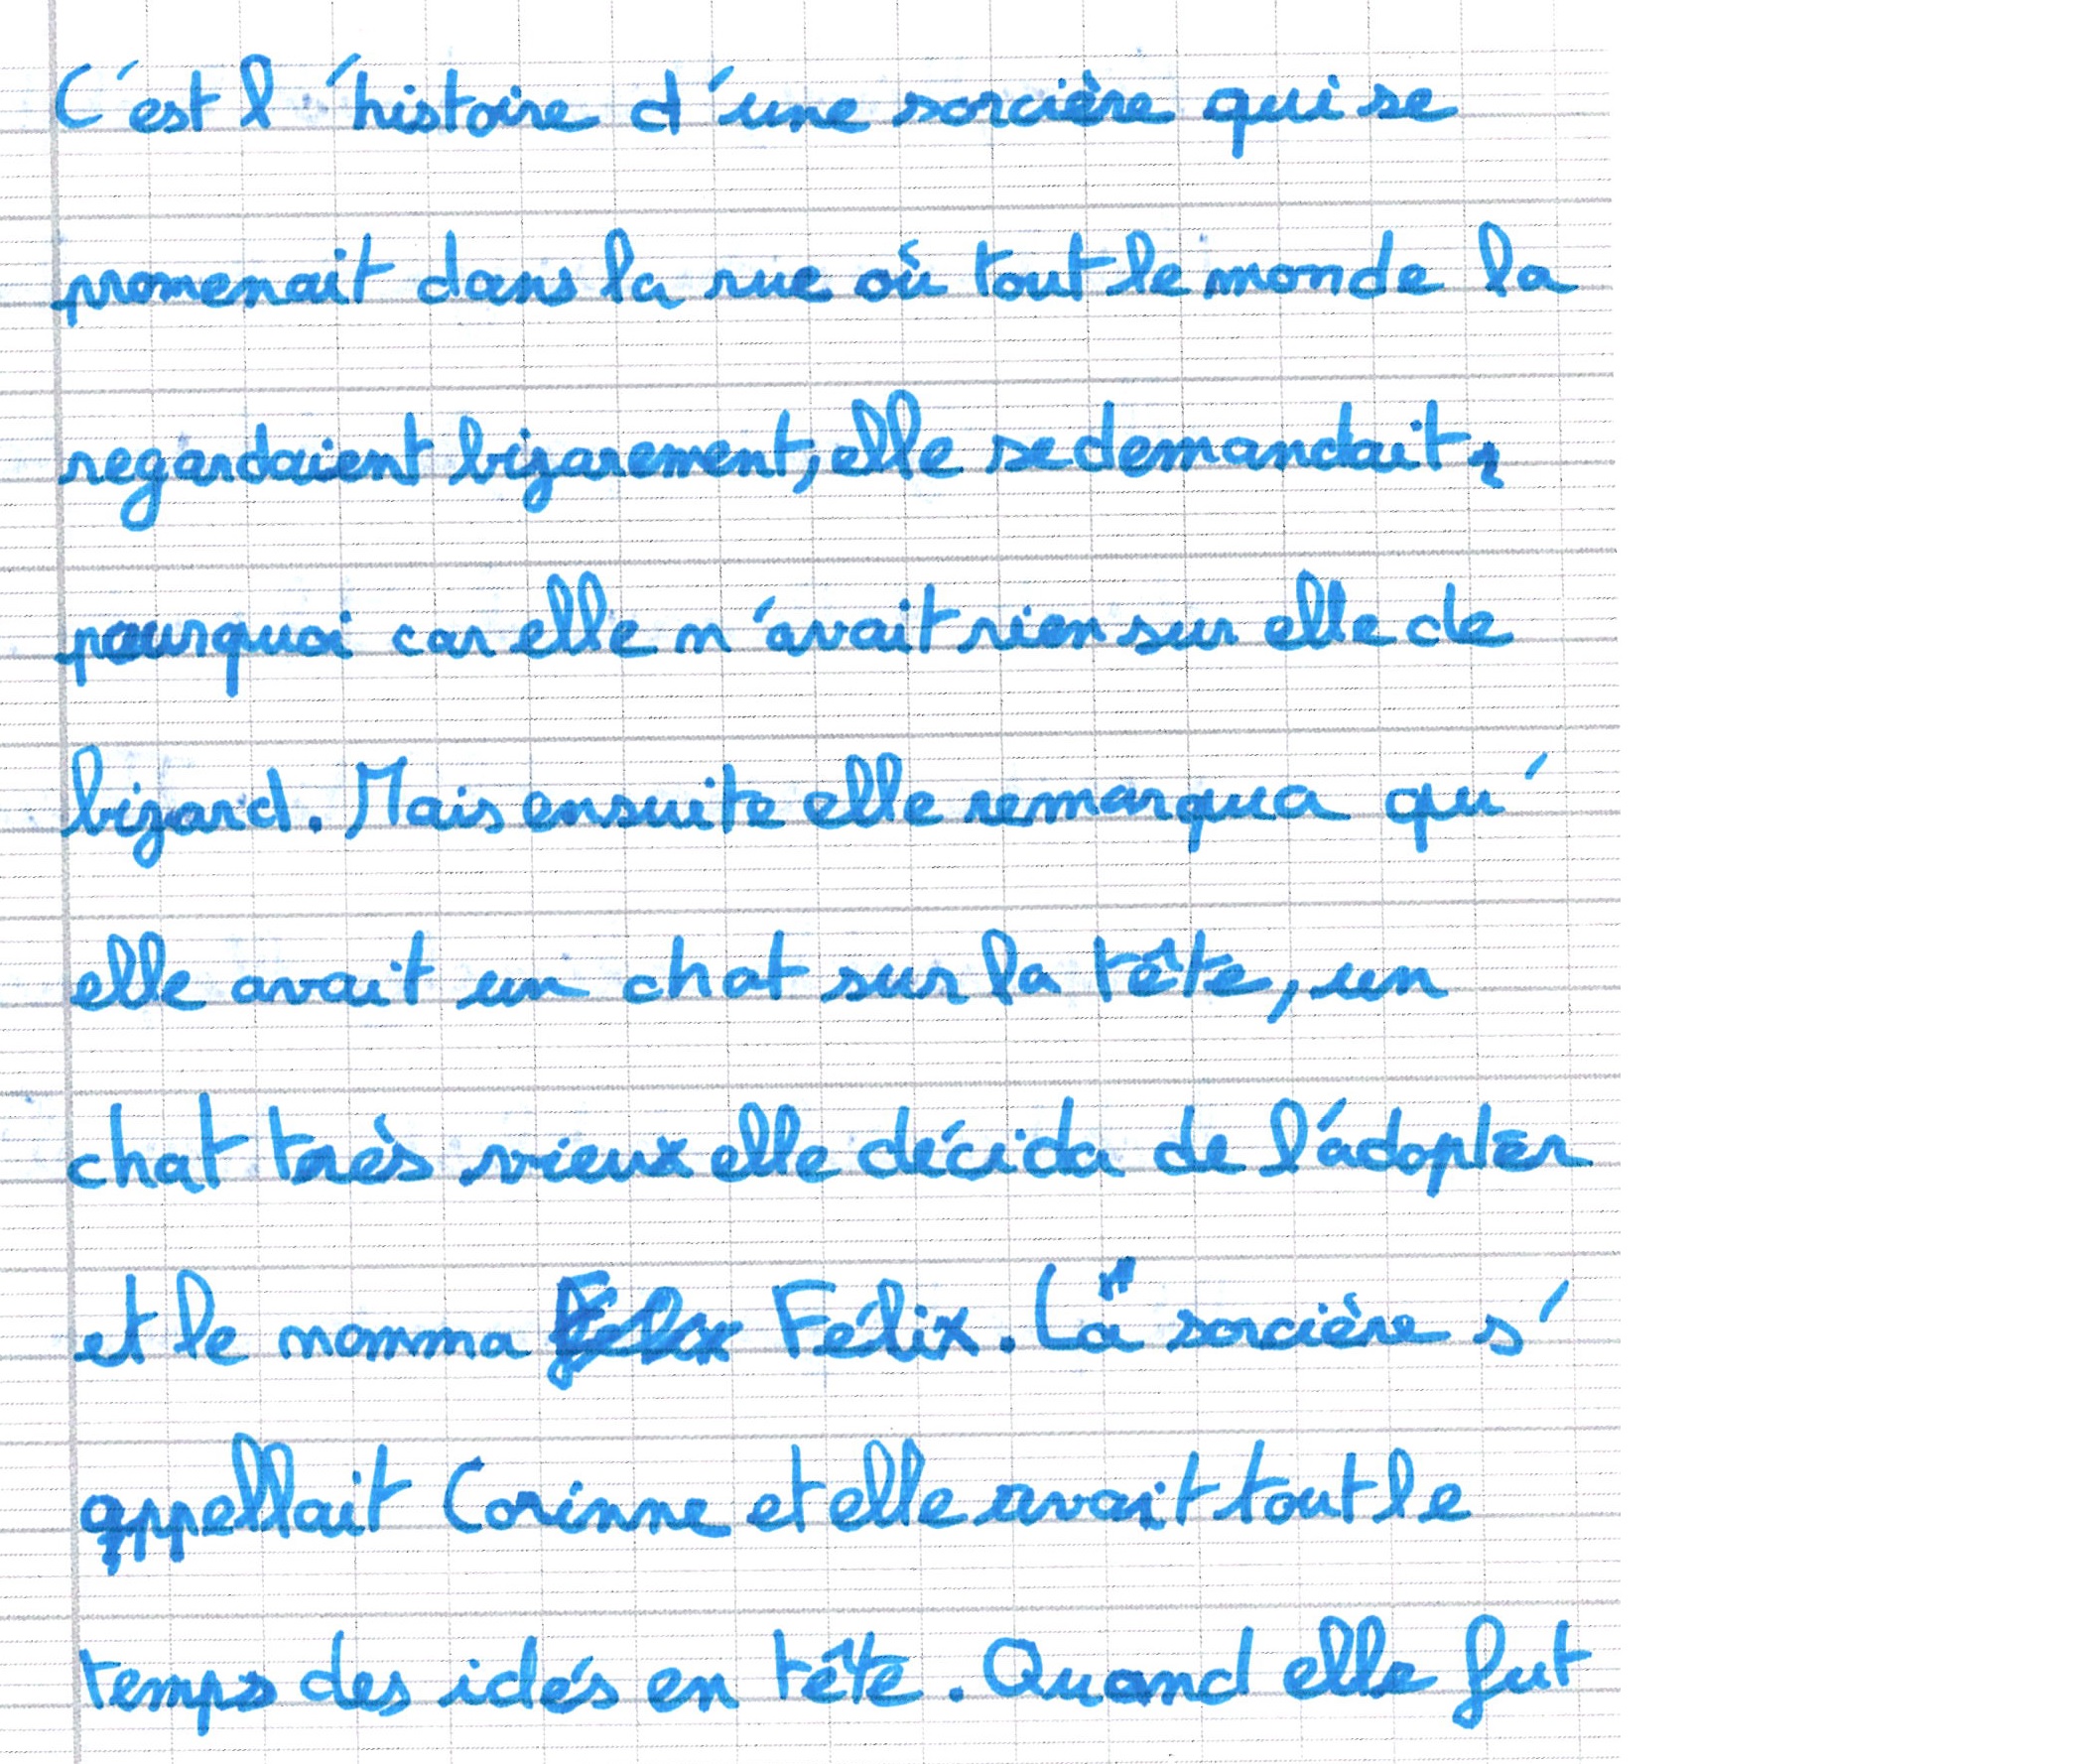 C'est l'histoire d'une sorcière qui se
promenait dans la rue où tout le monde la
regardaient bizarement, elle se demandait
pourquoi car elle n'avait rien sur elle de
bizard. Mais ensuite elle remarqua qu'
elle avait un chat sur la tête, un
chat très vieux elle décida de l'adopter
et le nomma Félix. La sorcière s'
appellait Corinne et elle avait tout le
temps des idés en tête. Quand elle fut